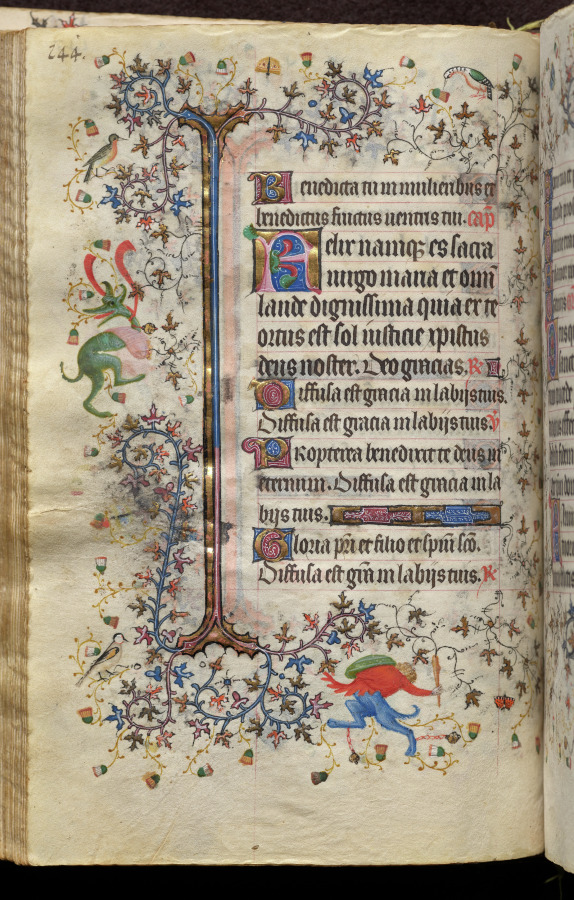 244.
Benedicta tu in mulieribus et
benedictus fructus uentris tui. cap̄
Felix namq̄ es sacra
uirgo maria et omī
laude dignissima quia ex te
ortus est sol iusticie xpistus
deus noster. Deo gracias. R
Diffusa est gracia in labijs tuis.
Diffusa est gracia in labijs tuis. V
Propterea benedixit te deus in
eternum. Diffusa est gracia in la
bijs tuis.
Gloria pr̄i et filio et sp̄ui sc̄o.
Diffusa est gr̄a in labijs tuis. R